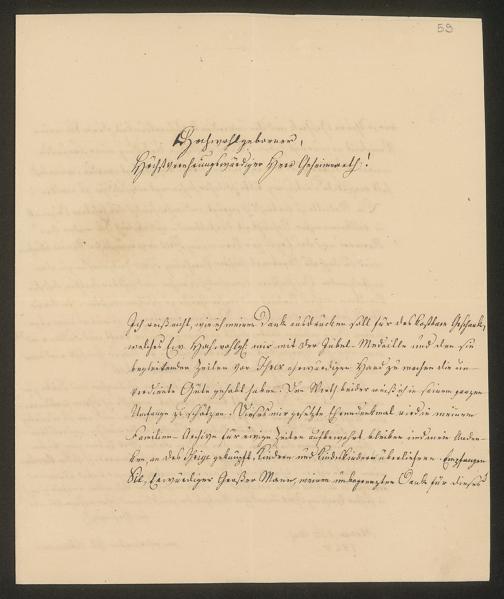 59
Hochwohlgeborner,
Höchstverehrungswürdiger Herr Geheimerath!
Ich weiß nicht, wie ich meinen Dank ausdrücken soll für das kostbare Geschenk,
welches Ew. Hochwohlgb. mir mit der Jubel-Medaille und den sie
begleitenden Zeilen von Ihrer ehrwürdigen Hand zu machen die un-
verdiente Güte gehabt haben. Den Werth beider weiß ich in seinem ganzen
Umfange zu schätzen. Dieses mir gesetzte Ehrendenkmal wird in meinem
Familien-Archive für ewige Zeiten aufbewahrt bleiben und mein Anden-
ken, an das Ihrige geknüpft, Kindern und Kindeskindern überliefern. Empfangen
Sie, Ehrwürdiger Großer Mann, meinen unbegrenzten Dank für dieses